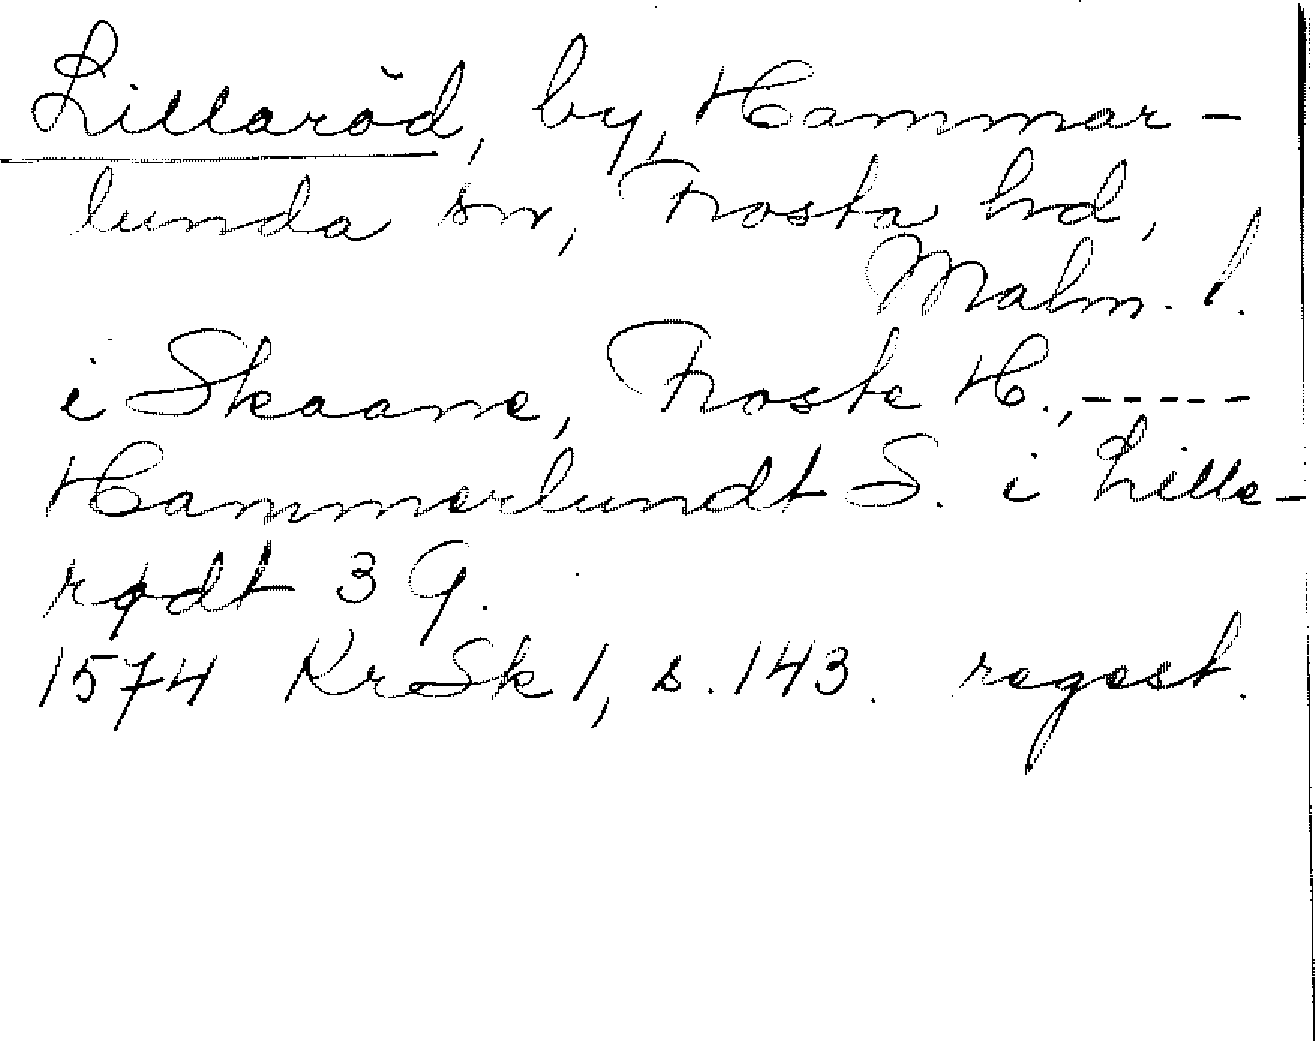 Lillaröd, by, Hammar-
lunda sn, Frosta hd,
Malm. l.
i Skaane, Froste H., -----
Hammerlundt S. i Lille-
rødt 3 G.
1574 KrSk 1, s. 143. regest.